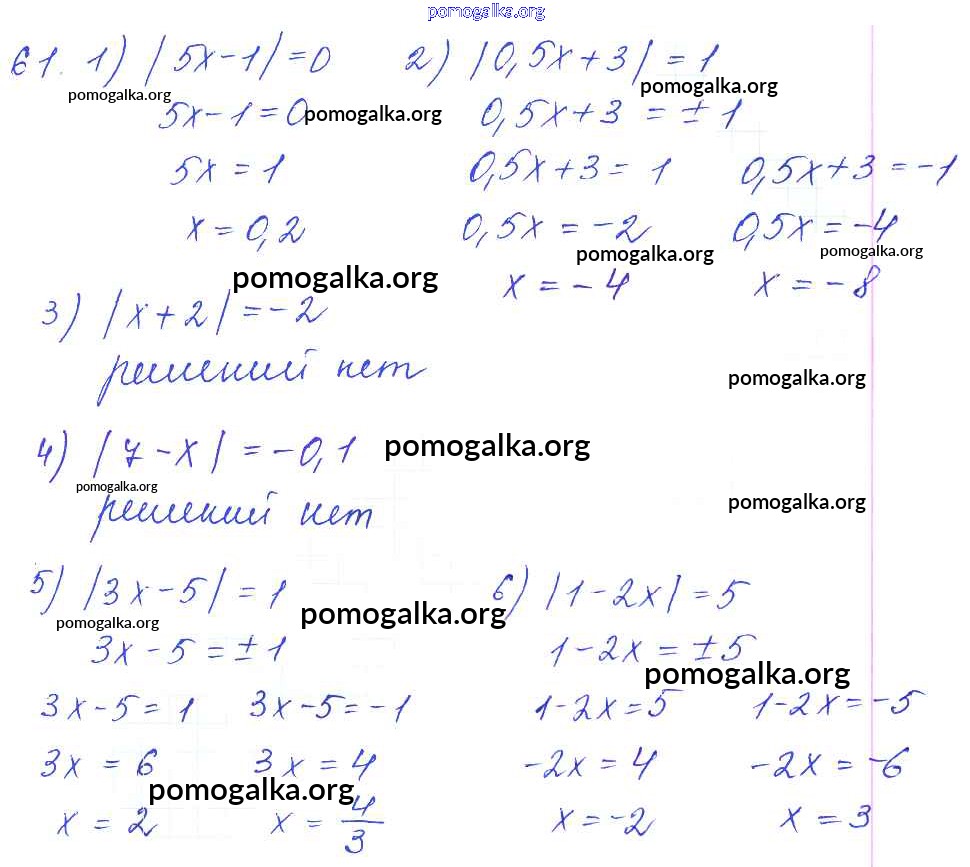 pomogalka.org
61. 1) |5x-1|=0 2) |0,5x+3|=1
pomogalka.org pomogalka.org
5x-1=0 pomogalka.org 0,5x+3=±1
5x=1 0,5x+3=1 0,5x+3=-1
x=0,2 0,5x=-2 0,5x=-4
pomogalka.org pomogalka.org
pomogalka.org x=-4 x=-8
3) |x+2|=-2
решений нет pomogalka.org
4) |7-x|=-0,1 pomogalka.org
pomogalka.org
решений нет pomogalka.org
5) |3x-5|=1 6) |1-2x|=5
pomogalka.org pomogalka.org
3x-5=±1 1-2x=±5
pomogalka.org
3x-5=1 3x-5=-1 1-2x=5 1-2x=-5
3x=6 3x=4 -2x=4 -2x=-6
pomogalka.org
x=2 x=4/3 x=-2 x=3